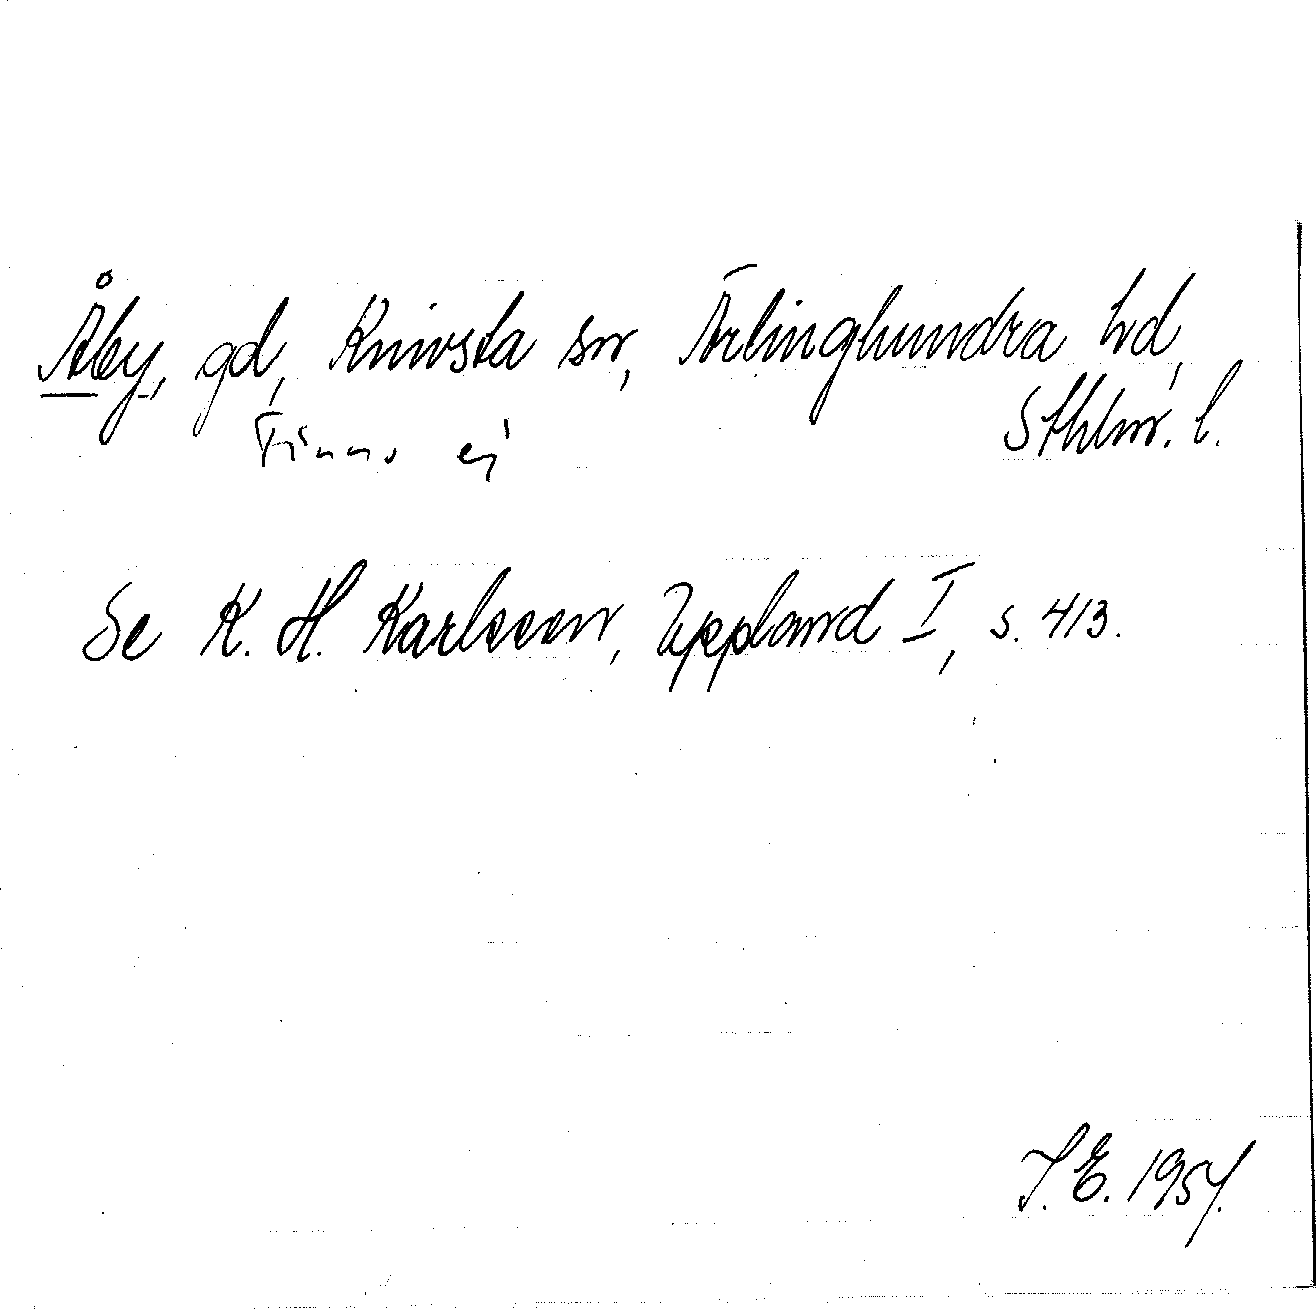 Åby, gd, Knivsta sn, Ärlinghundra hd,
Sthlm. l.
Finns ej
Se K. H. Karlsson, Uppland I, s. 413.
I. E. 1957.